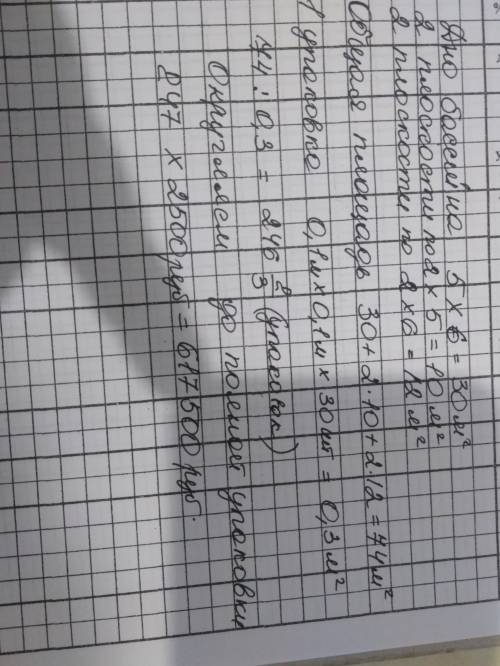 Дно бассейна 5 х 6 = 30 м²
2 плоскости по 2 х 5 = 10 м²
2 плоскости по 2 х 6 = 12 м²
Общая площадь 30 + 2·10 + 2·12 = 74 м²
1 упаковка 0,1м х 0,1м х 30шт = 0,3 м²
74 : 0,3 = 246 2/3 (упаковок)
Округляем до полной упаковки
247 х 2500 руб = 617 500 руб.